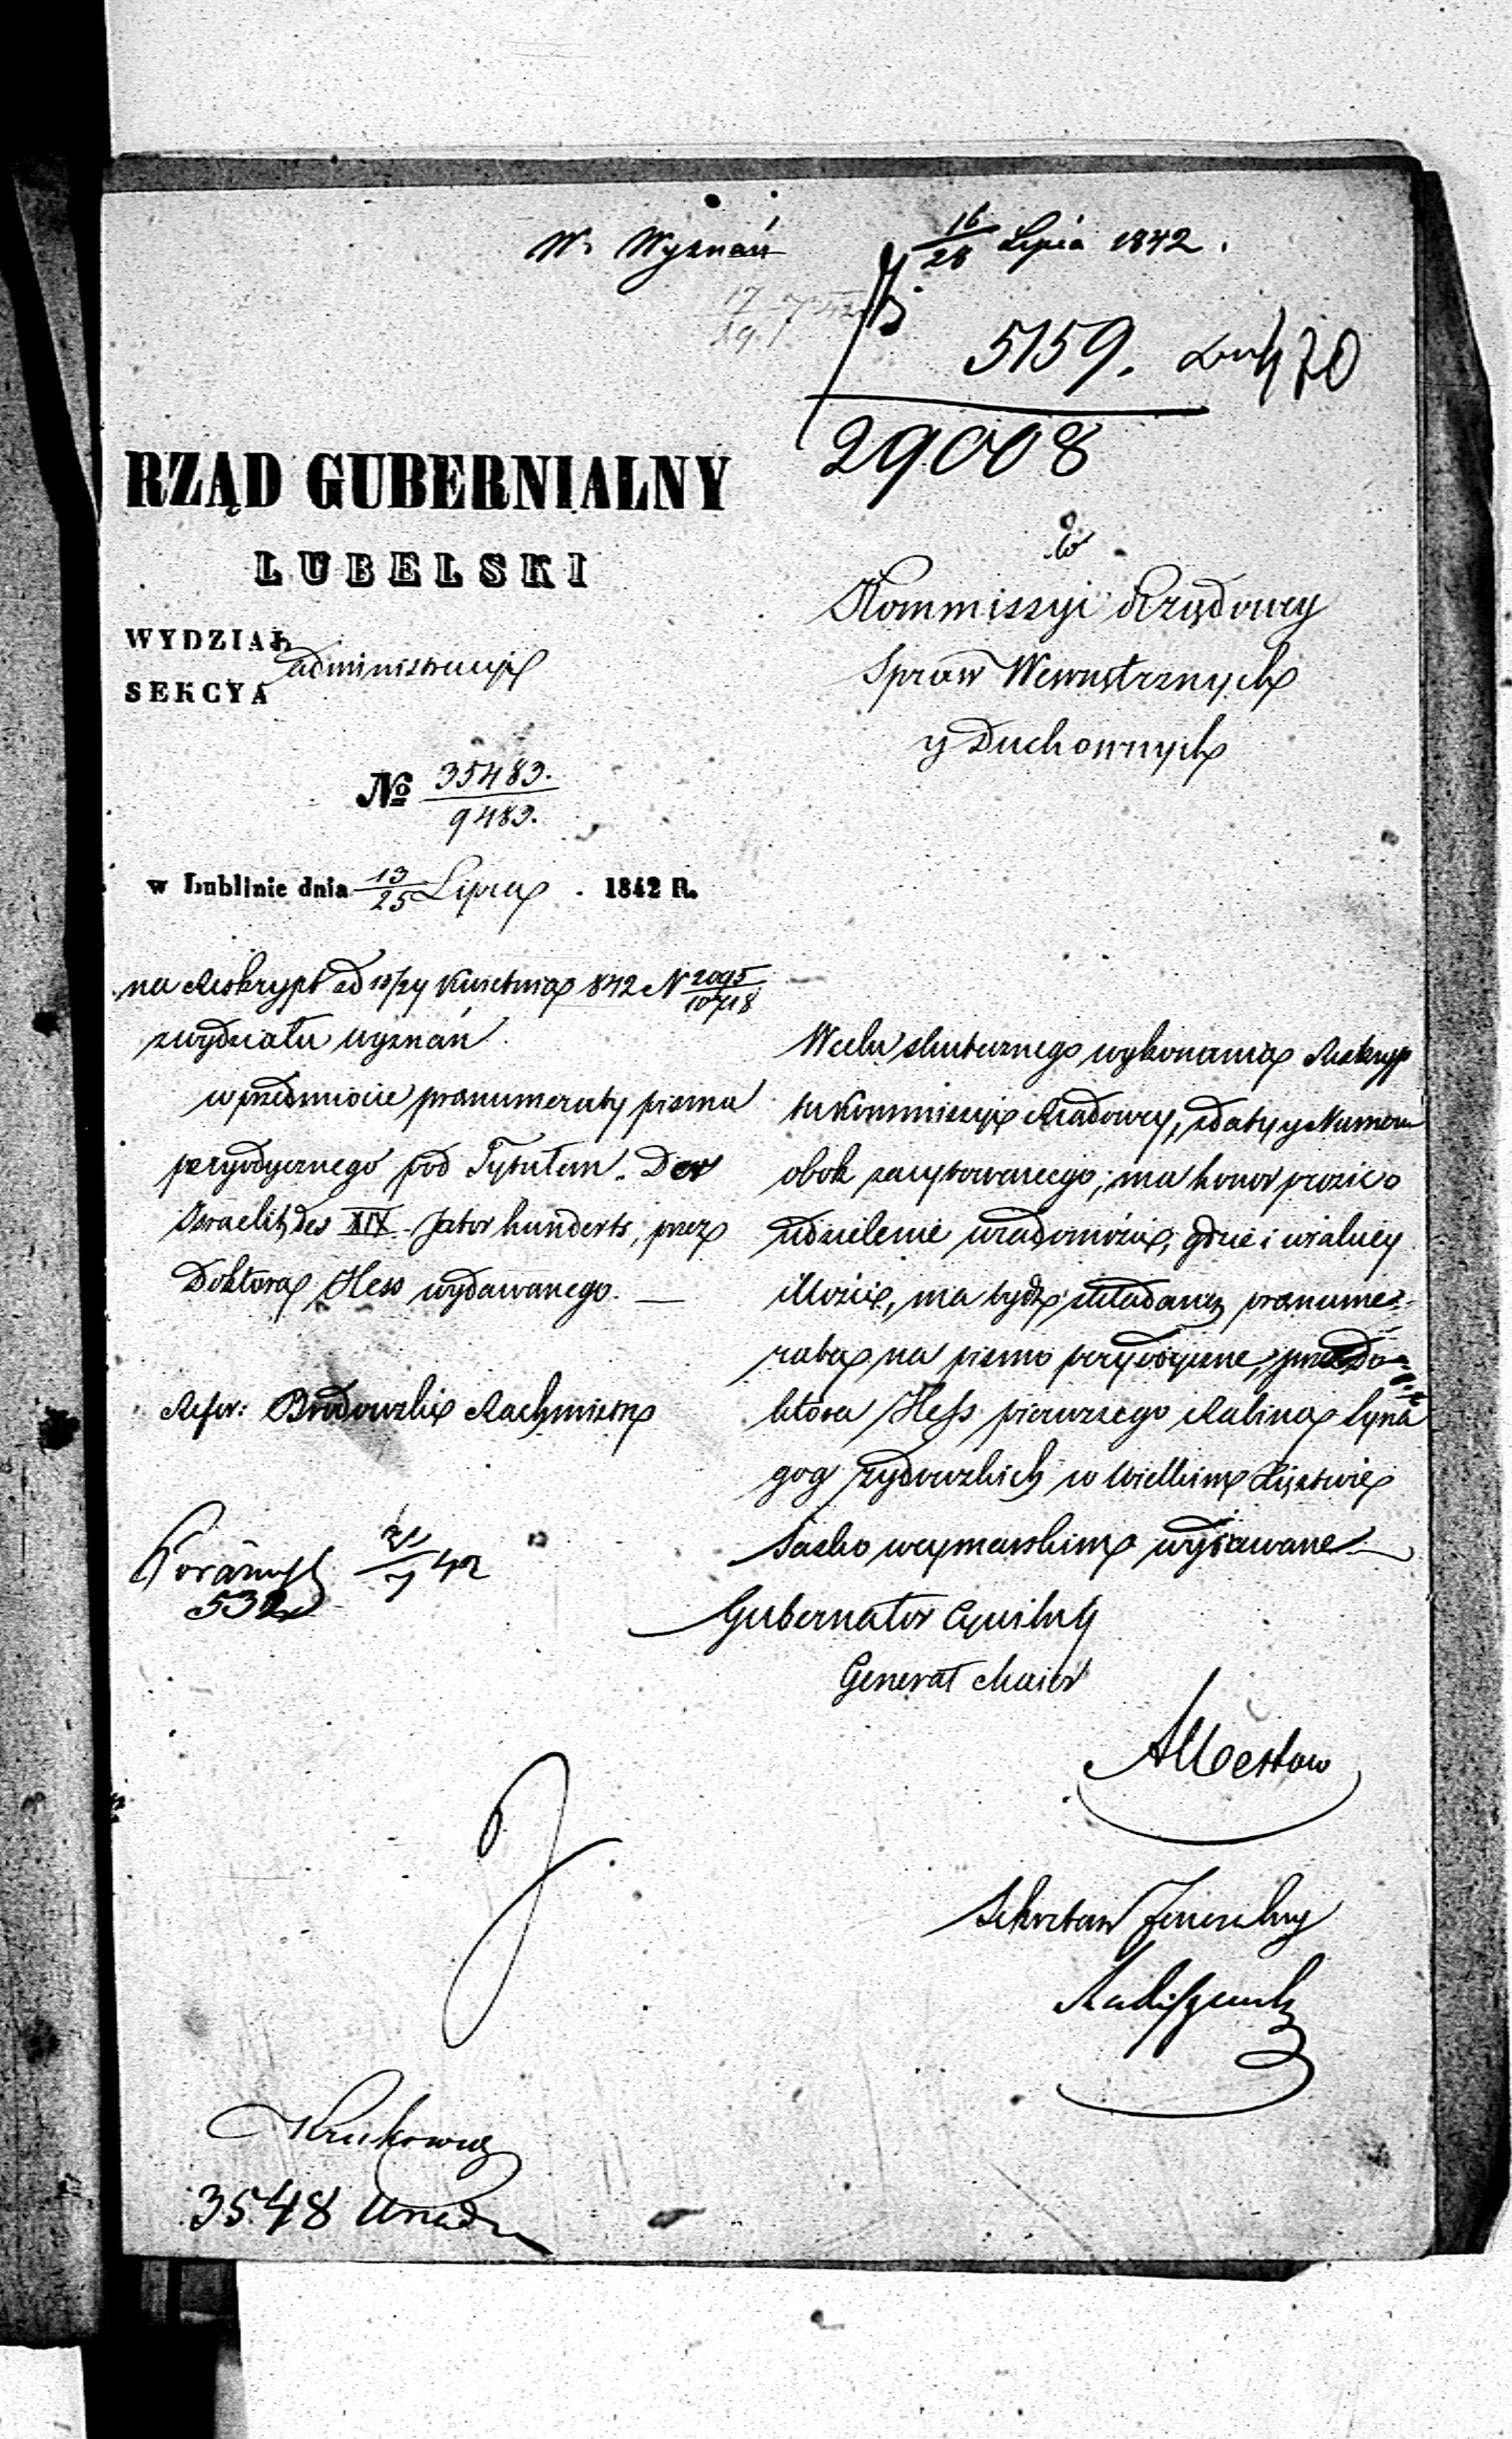 W. Wyznań
16/28 Lipca 1842.
17/29 7
5159.
70
29008
RZĄD GUBERNIALNY
LUBELSKI
WYDZIAŁ
administracyi
SEKCYA
№ 35483./9483.
w Lublinie dnia 13/25 Lipca 1842 R.
Do
Kommissyi Rządowey
Spraw Wewnętrznych
y Duchownych
na Reskrypt d 12/24 Kwietnia 842 N 2095/10718
z wydziału wyznań
w przedmiocie pranumeraty pisma
peryodycznego pod Tytułem „Der
Israelit des XIX Jahrhunderts, przez
Doktora Hess wydawanego. —
Refer: Brodowski Rachmistrz
42
532
W celu skutecznego wykonania Reskryp
tu Kommissyi Rządowey, z daty y Numeru
obok zacytowanego; ma honor prosić o
udzielenie wiadomości, gdzie i w iakiey
ilości, ma bydź składana pranume-
rata na pismo peryodyczne, przez Do-
ktora Hess pierwszego Rabina Syna
gog żydowskich w Wielkim Xięstwie
Sasko weymarskim wydawane —
Gubernator Cywilny
Generał Maior
Sekretarz Jeneralny
3548